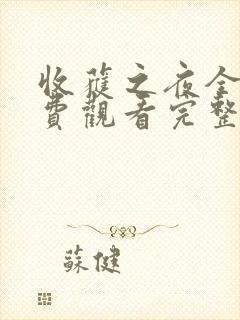 收穫之夜全
費觀看完整
蘇健